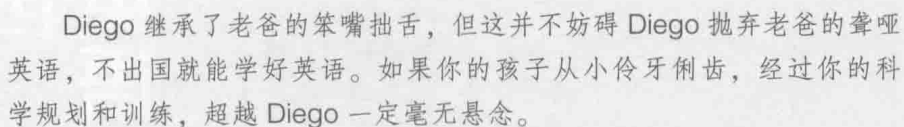 Diego 继承了老爸的笨嘴拙舌，但这并不妨碍 Diego 抛弃老爸的聋哑
英语，不出国就能学好英语。如果你的孩子从小伶牙俐齿，经过你的科
学规划和训练，超越 Diego 一定毫无悬念。